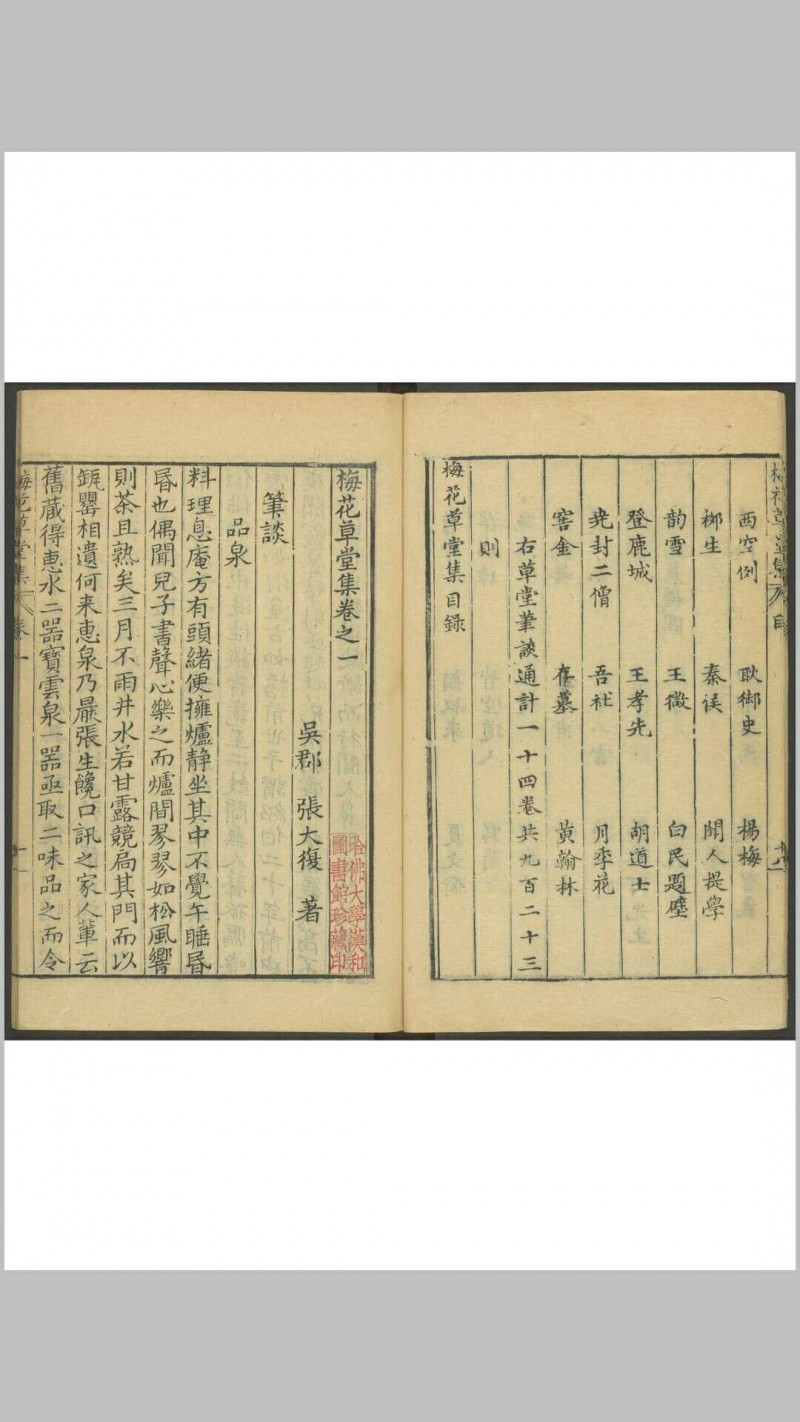 西空例 耿御史 楊梅
栁生 秦侯 聞人提學
韵雪 王徵 白民題壁
登鹿城 王孝先 胡道士
尭封二僧 吾社 月季花
窖金 奪墓 黃翰林
右草堂筆談通計一十四卷共九百二十三
則
梅花草堂集目録
梅花草堂集卷之一
吳郡 張大復 著
筆談
品泉
料理息庵方有頭緒便擁爐静坐其中不覺午睡昏
昏也偶聞兒子書聲心樂之而爐間琴琴如松風響
則茶且熟矣三月不雨井水若甘露競扃其門而以
缾罌相遺何来惠泉乃嚴張生饞口訊之家人輩云
舊蔵得惠水二器寶雲泉一器亟取二味品之而令
哈佛大學漢和
圖書館珍藏印